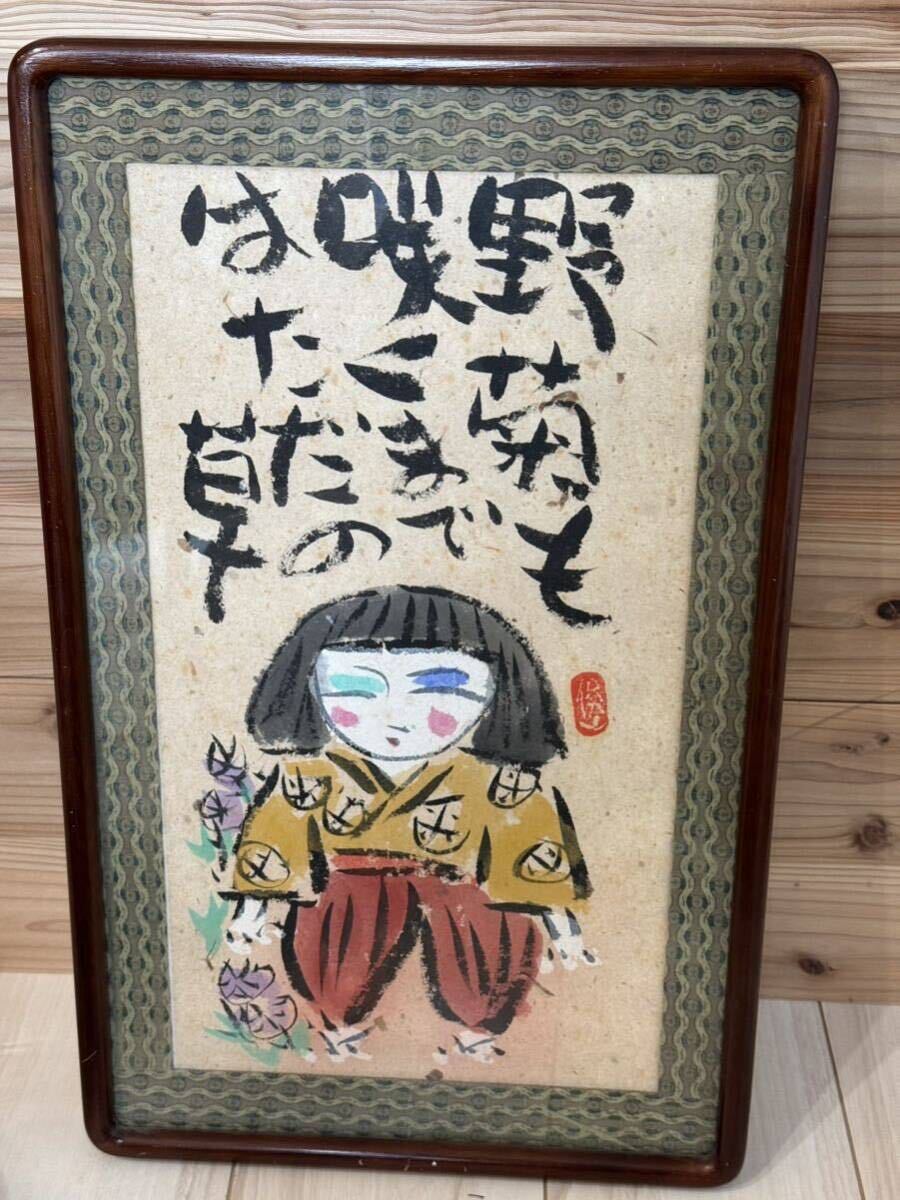 野菊も
咲くまで
はただの
草